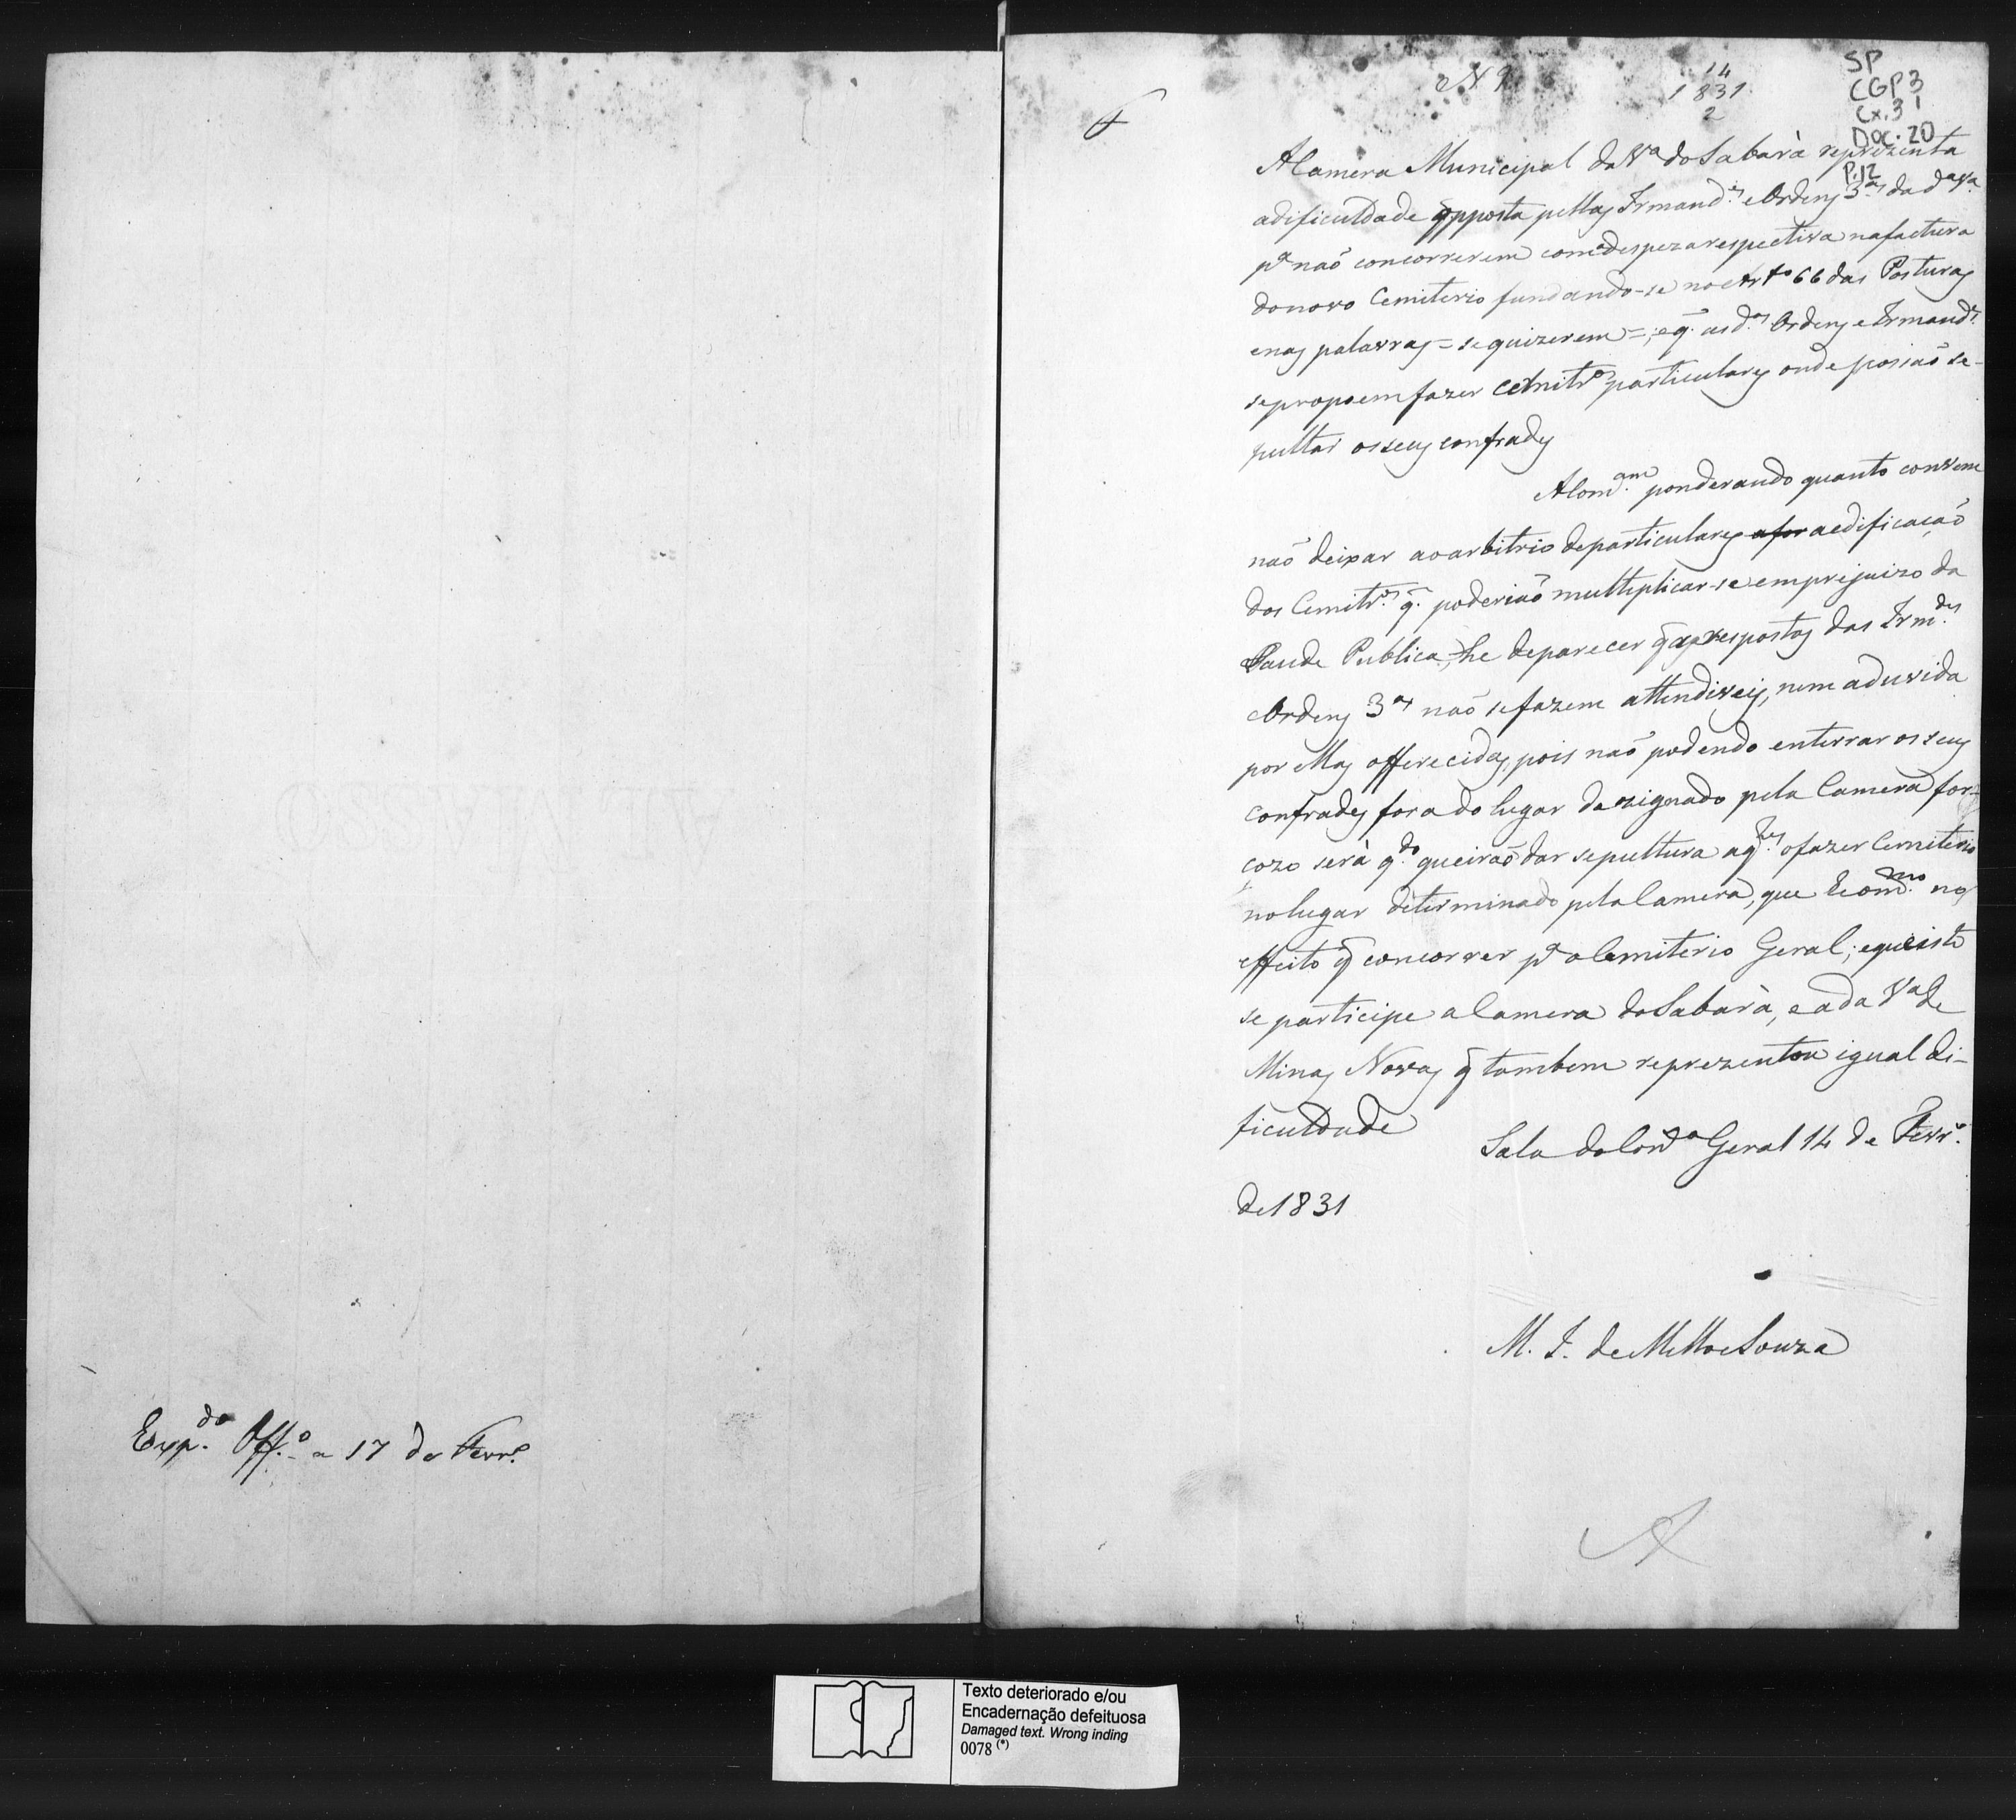 Exp.do Off.o a 17 de Fevr.o
N 9
14
1831
2
SP
CGP3
Cx.31
Doc.20
P.12
A Camera Municipal da Va do Sabarà reprezenta
a dificuldade opposta pellas Irmand.es e Ordens 3.as da da Va
pa naõ concorrerem com a despeza respectiva na factura
do novo Cemiterio fundando-se no Arto 66 das Posturas
e nas palavras = se quizerem =, e q. as d.as Ordens e Irmand.es
se propoem fazer Cemitr.os particulares onde possaõ se-
pultar os seus confrades
A Com.am ponderando quanto convem
naõ deixar ao arbitrio de particulares a edificaçaõ
dos Cemitr.os q. poderiaõ multiplicar-se em prejuizo da
Saude Publica, he de parecer q as respostas das Irm.des
Ordens 3as naõ se fazem attendiveis, nem a duvida
por ellas offerecidas, pois naõ podendo enterrar os seus
confrades fora do lugar dezignado pela Camera for-
çozo serà q.do queiraõ dar sepultura a q.les o fazer Cemiterio
no lugar determinado pela Camera, que he o m.mo no
effeito q concorrer pa o Cemiterio Geral; e que isto
se participe a Camera do Sabarà, e a da Va de
Minas Novas q tambem reprezentou igual di-
ficuldade
Sala do Cons.o Geral 14 de Fevr.o
de 1831
M. I. de Mello e Souza
Texto deteriorado e/ou
Encadernação defeituosa
Damaged text. Wrong inding
0078 (*)